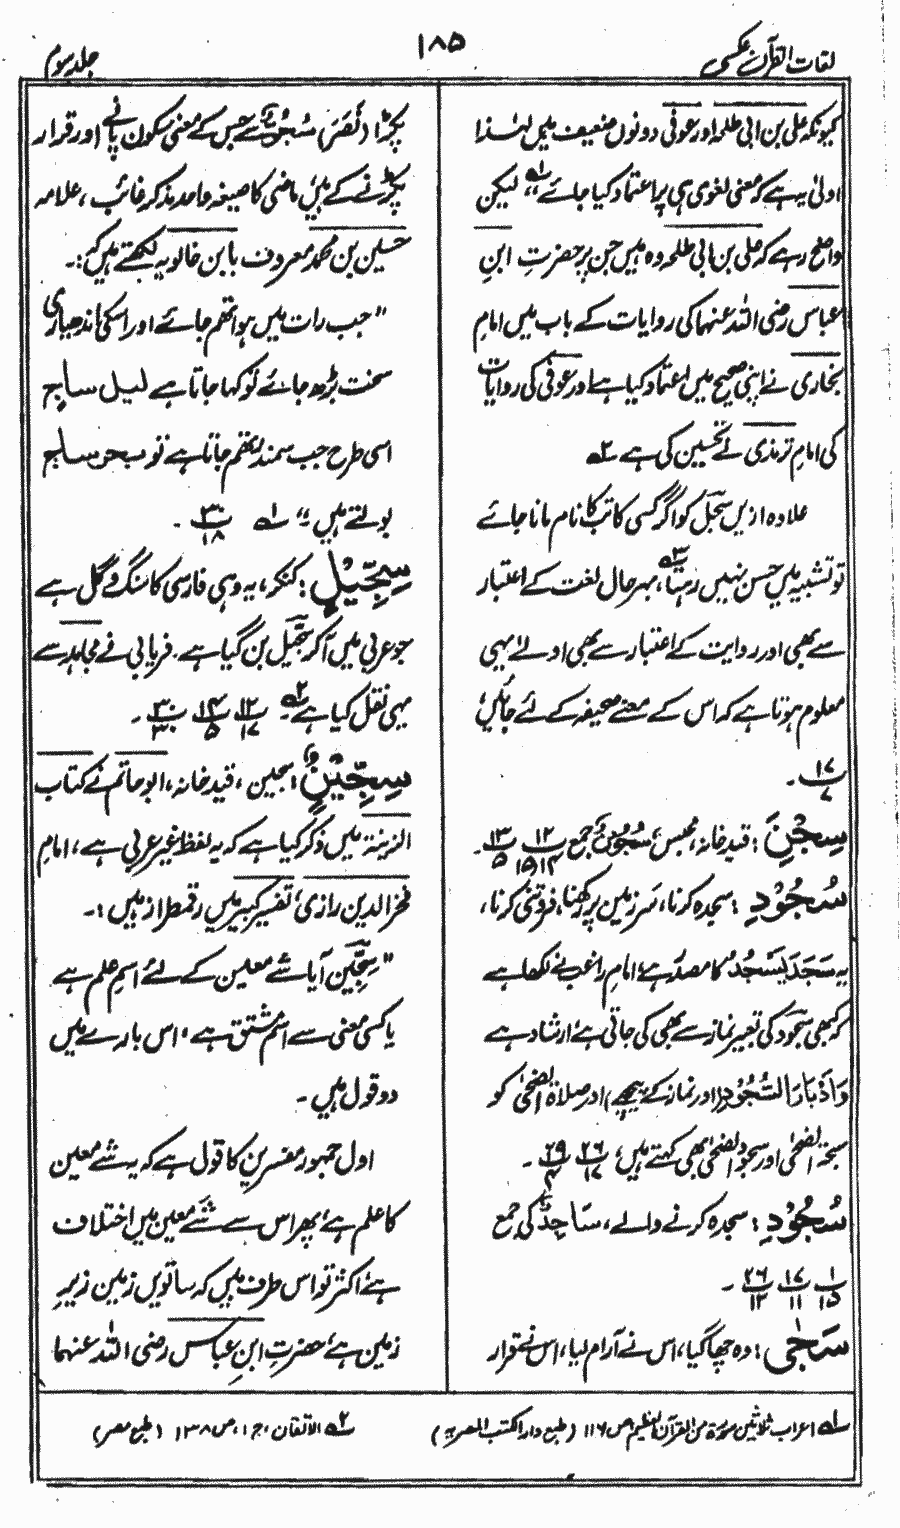 لغات القرآن عکسی
۱۸۵
جلد سوم
کیونکہ علی بن ابی طلحہ اور عوفی دونوں ضعیف ہیں لہٰذا
اولیٰ یہ ہے کہ معنی لغوی ہی پر اعتماد کیا جائے ۱ے لیکن
واضح رہے کہ علی بن ابی طلحہ وہ ہیں جن پر حضرتِ ابنِ
عباس رضی اللہ عنہما کی روایات کے باب میں امامِ
بخاری نے اپنی صحیح میں اعتماد کیا ہے اور عوفی کی روایات
کی امامِ ترمذی نے تحسین کی ہے ۲ے
علاوہ ازیں سجل کو اگر کسی کاتب کا نام مانا جائے
تو تشبیہ میں حسن نہیں رہتا ۳ے، بہر حال لغت کے اعتبار
سے بھی اور روایت کے اعتبار سے بھی اولےٰ یہی
معلوم ہوتا ہے کہ اس کے معنے صحیفہ کے لئے جائیں
۱۷/۷ ۔
سِجْنِ : قید خانہ، محبس، سُجُوْنٌ جمع ۱۲/۱۵۱۴ ۱۳/۵ ۔
سُجُوْدِ : سجدہ کرنا، سر زمین پر رکھنا، فروتنی کرنا،
یہ سَجَدَ یَسْجُدُ کا مصدر ہے، امامِ راغب نے لکھا ہے
کہ کبھی سجود کی تعبیر نماز سے بھی کی جاتی ہے، ارشاد ہے
وَاَدْبَارَ السُّجُوْدِ (اور نماز کے پیچھے) اور صلاۃ الضحیٰ کو
سبحۃ الضحیٰ اور سجود الضحیٰ بھی کہتے ہیں، ۲۶/۱۷ ۲۹/۴ ۔
سُجُوْدِ : سجدہ کرنے والے، سَاجِدٌ کی جمع
۱/۱۵ ۱۷/۱۱ ۲۶/۱۲ ۔
سَجٰی : وہ چھا گیا، اس نے آرام لیا، اس نے قرار
پکڑا (نَصَرَ) سُجُوٌّ سے جس کے معنی سکون پانے اور قرار
پکڑنے کے ہیں، ماضی کا صیغہ واحد مذکر غائب، علامہ
حسین بن محمد معروف بابن خالویہ لکھتے ہیں کہ :۔
”جب رات میں ہوا تھم جائے اور اسکی اندھیاری
سخت بڑھ جائے تو کہا جاتا ہے لیل ساج
اسی طرح جب سمندر تھم جاتا ہے تو بحر ساج
بولتے ہیں“ ۱ے ۳۰/۱۸ ۔
سِجِّیْلٍ : کنکر، یہ وہی فارسی کا سنگ و گل ہے
جو عربی میں آکر سجیل بن گیا ہے۔ فریابی نے مجاہد سے
یہی نقل کیا ہے ۲ے ۱۲/۱۷ ۱۴/۵ ۳۰/۳۰ ۔
سِجِّیْنٌ : سجین، قید خانہ، ابو حاتم نے کتاب
الزینۃ میں ذکر کیا ہے کہ یہ لفظ غیر عربی ہے، امامِ
فخر الدین رازی، تفسیر کبیر میں رقمطراز ہیں :۔
”سِجِّین آیا شے معین کے لئے اسمِ علم ہے
یا کسی معنی سے اسم مشتق ہے، اس بارے میں
دو قول ہیں ۔
اول جمہور مفسرین کا قول ہے کہ یہ شے معین
کا علم ہے، پھر اس سے شے معین میں اختلاف
ہے، اکثر تو اس طرف ہیں کہ ساتویں زمین زیرِ
زمین ہے، حضرتِ ابنِ عباس رضی اللہ عنہما
۱ے اعراب ثلاثین سورۃ من القرآن العظیم ص ۱۱۶ (طبع دار الکتب المصریۃ)
۲ے الاتقان، ج ۱، ص ۱۳۸ (طبع مصر)